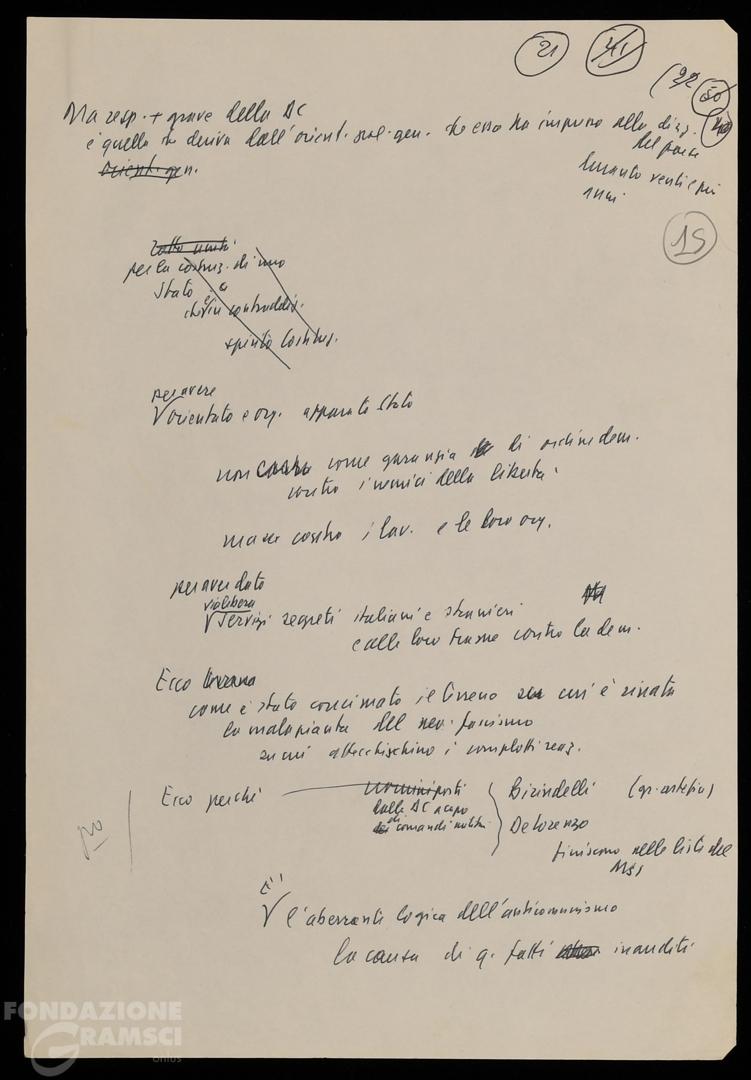 21 41
(22 50
40
Ma resp. + grave della DC
è quella che deriva dall'orient. pol. gen. che essa ha impresso alla direz.
del paese
durante venti e più
anni
orient. gen.
15
per la costruz. di uno
Stato
che è in contraddiz.
spirito Costituz.
per avere
V orientato e org. apparato Stato
non come garanzia di ordine dem.
contro i nemici della libertà
ma contro i lav. e le loro org.
per aver dato
via libera
V servizi segreti italiani e stranieri
e alle loro trame contro la dem.
Ecco
come è stato concimato il terreno su cui è rinata
la malapianta del neo-fascismo
su cui attecchiscono i complotti reaz.
Ecco perché
uomini posti
dalla DC a capo
di comandi militari
Birindelli
De Lorenzo
finiscono nelle liste del
MSI
no
E'
V l'aberrante logica dell'anticomunismo
la causa di q. fatti inauditi
FONDAZIONE
GRAMSCI
onlus